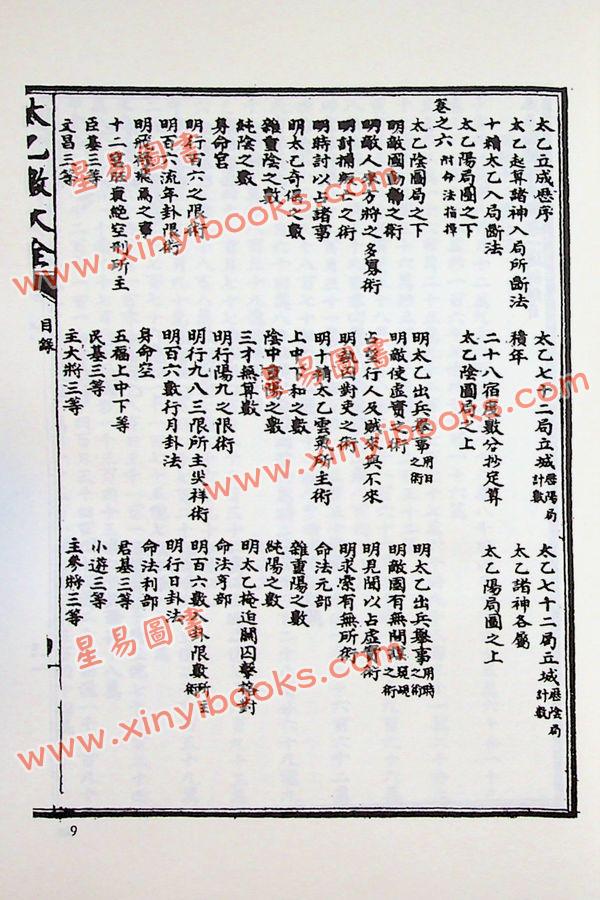 太乙立成歷序
太乙七十二局立城歷陽局計數
太乙七十二局立城歷陰局計數
太乙起算諸神入局所斷法
積年
太乙諸神各屬
十精太乙入局斷法
二十八宿度數分抄定算
太乙陽局圖之上
太乙陽局圖之下
太乙陰圖局之上
卷之六
太乙陰圖局之下
明太乙出兵舉事用日之術
明太乙出兵舉事用時之術
明敵國動靜之術
明敵使虛實之術
明敵國有無間諜之術
明敵人來方將之多寡術
占望行人及賊來與不來
明見聞以占虛實術
明計捕叛亡之術
明執囚對吏之術
明求索有無所術
明時計以占諸事
明十精太乙雲氣所主術
命法元部
明太乙奇偶之數
上中下和之數
雜重陽之數
雜重陰之數
陰中重陽之數
純陽之數
純陰之數
三才無算數
明太乙掩迫關囚擊格對
身命宮
明行陽九之限術
命法亨部
明行百六之限術
明行九八三限所主災祥術
明百六數入卦限數所主術
明百六流年卦限術
明百六數行月卦法
明行日卦法
明飛祿飛馬之事
身命空
命法利部
十二宮旺衰絕空刑所主
五福上中下等
君基三等
臣基三等
民基三等
小遊三等
文昌三等
主大將三等
主參將三等
太乙數大全
目錄
9
星易圖書
www.xinyibooks.com
星易圖書
www.xinyibooks.com
星易圖書
www.xinyibooks.com